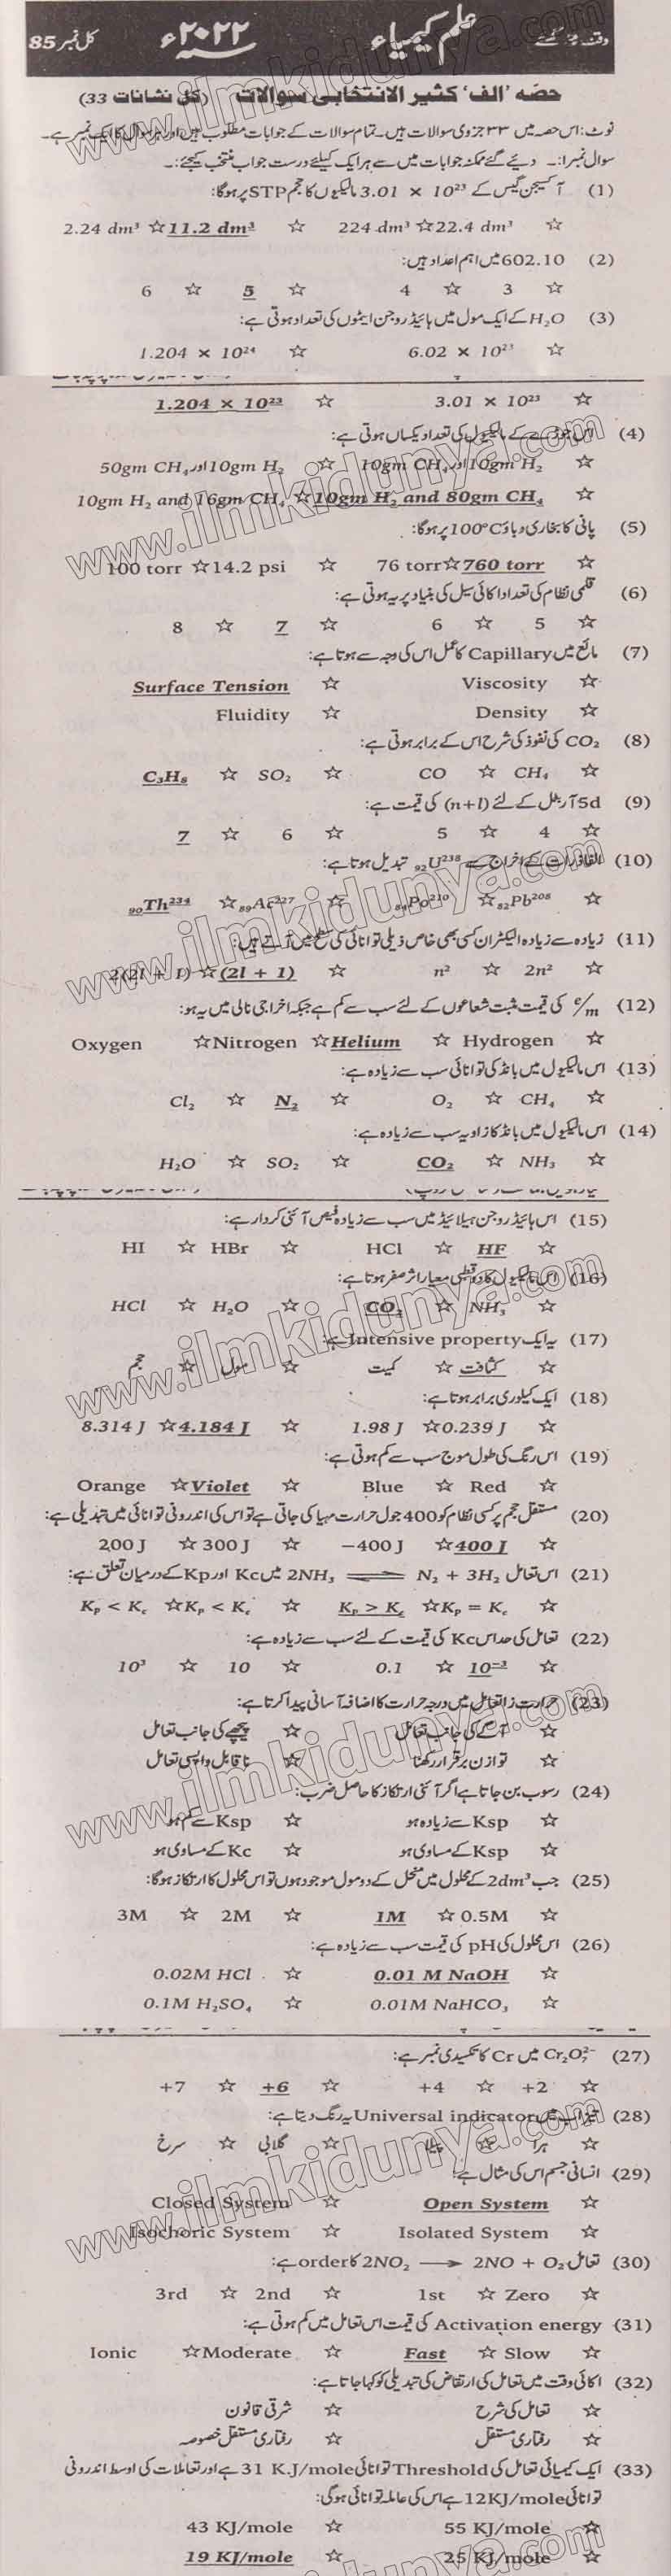 وقت: 2 گھنٹے علم کیمیاء ۲۰۲۲ء کل نمبر 85
حصّہ 'الف' کثیر الانتخابی سوالات (کل نشانات 33)
نوٹ: اس حصہ میں ۳۳ جزوی سوالات ہیں۔ تمام سوالات کے جوابات مطلوب ہیں اور ہر سوال کا ایک نمبر ہے۔
سوال نمبر۱:۔ دیئے گئے ممکنہ جوابات میں سے ہر ایک کیلئے درست جواب منتخب کیجئے:۔
(1) آکسیجن گیس کے 3.01 × 10²³ مالیکیولوں کا حجم STP پر ہوگا:
☆ 22.4 dm³ ☆ 224 dm³ ☆ 11.2 dm³ ☆ 2.24 dm³
(2) 602.10 میں اہم اعداد ہیں:
☆ 3 ☆ 4 ☆ 5 ☆ 6
(3) H₂O کے ایک مول میں ہائیڈروجن ایٹموں کی تعداد ہوتی ہے:
☆ 6.02 × 10²³ ☆ 1.204 × 10²⁴
☆ 3.01 × 10²³ ☆ 1.204 × 10²³
(4) اس جوڑے کے مالیکیول کی تعداد یکساں ہوتی ہے:
☆ 10gm H₂ اور 10gm CH₄ ☆ 10gm H₂ اور 50gm CH₄
☆ 10gm H₂ and 80gm CH₄ ☆ 10gm H₂ and 16gm CH₄
(5) پانی کا بخاری دباؤ 100°C پر ہوگا:
☆ 760 torr ☆ 76 torr ☆ 14.2 psi ☆ 100 torr
(6) قلمی نظام کی تعداد اکائی سیل کی بنیاد پر یہ ہوتی ہے:
☆ 5 ☆ 6 ☆ 7 ☆ 8
(7) مائع میں Capillary کا عمل اس کی وجہ سے ہوتا ہے:
☆ Viscosity ☆ Surface Tension
☆ Density ☆ Fluidity
(8) CO₂ کی نفوذ کی شرح اس کے برابر ہوتی ہے:
☆ CH₄ ☆ CO ☆ SO₂ ☆ C₃H₈
(9) 5d آربٹل کے لئے (n+l) کی قیمت ہے:
☆ 4 ☆ 5 ☆ 6 ☆ 7
(10) الفا ذرات کے اخراج سے ₉₂U²³⁸ تبدیل ہوتا ہے:
☆ ₈₂Pb²⁰⁸ ☆ ₈₄Po²¹⁰ ☆ ₈₉Ac²²⁷ ☆ ₉₀Th²³⁴
(11) زیادہ سے زیادہ الیکٹران کسی بھی خاص ذیلی توانائی کی سطح میں آتے ہیں:
☆ 2n² ☆ n² ☆ (2l + 1) ☆ 2(2l + 1)
(12) e/m کی قیمت مثبت شعاعوں کے لئے سب سے کم ہے جبکہ اخراجی نالی میں یہ ہو:
☆ Hydrogen ☆ Helium ☆ Nitrogen ☆ Oxygen
(13) اس مالیکیول میں بانڈ کی توانائی سب سے زیادہ ہے:
☆ CH₄ ☆ O₂ ☆ N₂ ☆ Cl₂
(14) اس مالیکیول میں بانڈ کا زاویہ سب سے زیادہ ہے:
☆ NH₃ ☆ CO₂ ☆ SO₂ ☆ H₂O
(15) اس ہائیڈروجن ہیلائیڈ میں سب سے زیادہ فیصد آئنی کردار ہے:
☆ HF ☆ HCl ☆ HBr ☆ HI
(16) اس مالیکیول کا دو قطبی معیار اثر صفر ہوتا ہے:
☆ NH₃ ☆ CO₂ ☆ H₂O ☆ HCl
(17) یہ ایک Intensive property ہے:
☆ کثافت ☆ کمیت ☆ مول ☆ حجم
(18) ایک کیلوری برابر ہوتا ہے:
☆ 0.239 J ☆ 1.98 J ☆ 4.184 J ☆ 8.314 J
(19) اس رنگ کی طول موج سب سے کم ہوتی ہے:
☆ Red ☆ Blue ☆ Violet ☆ Orange
(20) مستقل حجم پر کسی نظام کو 400 جول حرارت مہیا کی جاتی ہے تو اس کی اندرونی توانائی میں تبدیلی ہے:
☆ 400 J ☆ −400 J ☆ 300 J ☆ 200 J
(21) اس تعامل 2NH₃ ⇌ N₂ + 3H₂ میں Kc اور Kp کے درمیان تعلق ہے:
☆ Kp = Kc ☆ Kp > Kc ☆ Kp < Kc ☆ Kp < Kc
(22) تعامل کی حد اس Kc کی قیمت کے لئے سب سے زیادہ ہے:
☆ 10⁻³ ☆ 0.1 ☆ 10 ☆ 10³
(23) حرارت زا تعامل میں درجہ حرارت کا اضافہ آسانی پیدا کرتا ہے:
☆ آگے کی جانب تعامل ☆ پیچھے کی جانب تعامل
☆ توازن برقرار رکھنا ☆ ناقابل واپسی تعامل
(24) رسوب بن جاتا ہے اگر آئنی ارتکاز کا حاصل ضرب:
☆ Ksp سے زیادہ ہو ☆ Ksp سے کم ہو
☆ Ksp کے مساوی ہو ☆ Kc کے مساوی ہو
(25) جب 2dm³ کے محلول میں منحل کے دو مول موجود ہوں تو اس محلول کا ارتکاز ہوگا:
☆ 0.5M ☆ 1M ☆ 2M ☆ 3M
(26) اس محلول کی pH کی قیمت سب سے زیادہ ہے:
☆ 0.01 M NaOH ☆ 0.02M HCl
☆ 0.01M NaHCO₃ ☆ 0.1M H₂SO₄
(27) Cr₂O₇²⁻ میں Cr کا تکسیدی نمبر ہے:
☆ +2 ☆ +4 ☆ +6 ☆ +7
(28) تیزاب میں Universal indicator یہ رنگ دیتا ہے:
☆ ہرا ☆ پیلا ☆ گلابی ☆ سرخ
(29) انسانی جسم اس کی مثال ہے:
☆ Open System ☆ Closed System
☆ Isolated System ☆ Isochoric System
(30) تعامل 2NO₂ ⟶ 2NO + O₂ کا order ہے:
☆ Zero ☆ 1st ☆ 2nd ☆ 3rd
(31) Activation energy کی قیمت اس تعامل میں کم ہوتی ہے:
☆ Slow ☆ Fast ☆ Moderate ☆ Ionic
(32) اکائی وقت میں تعامل کی ارتقاض کی تبدیلی کو کہا جاتا ہے:
☆ تعامل کی شرح ☆ شرقی قانون
☆ رفتاری مستقل ☆ رفتاری مستقل خصوصہ
(33) ایک کیمیائی تعامل کی Threshold توانائی 31 K.J/mole ہے اور تعاملات کی اوسط اندرونی
توانائی 12KJ/mole ہے اس کی عاملہ توانائی ہوگی:
☆ 55 KJ/mole ☆ 43 KJ/mole
☆ 25 KJ/mole ☆ 19 KJ/mole
www.ilmkidunya.com
www.ilmkidunya.com
www.ilmkidunya.com
www.ilmkidunya.com
www.ilmkidunya.com
www.ilmkidunya.com